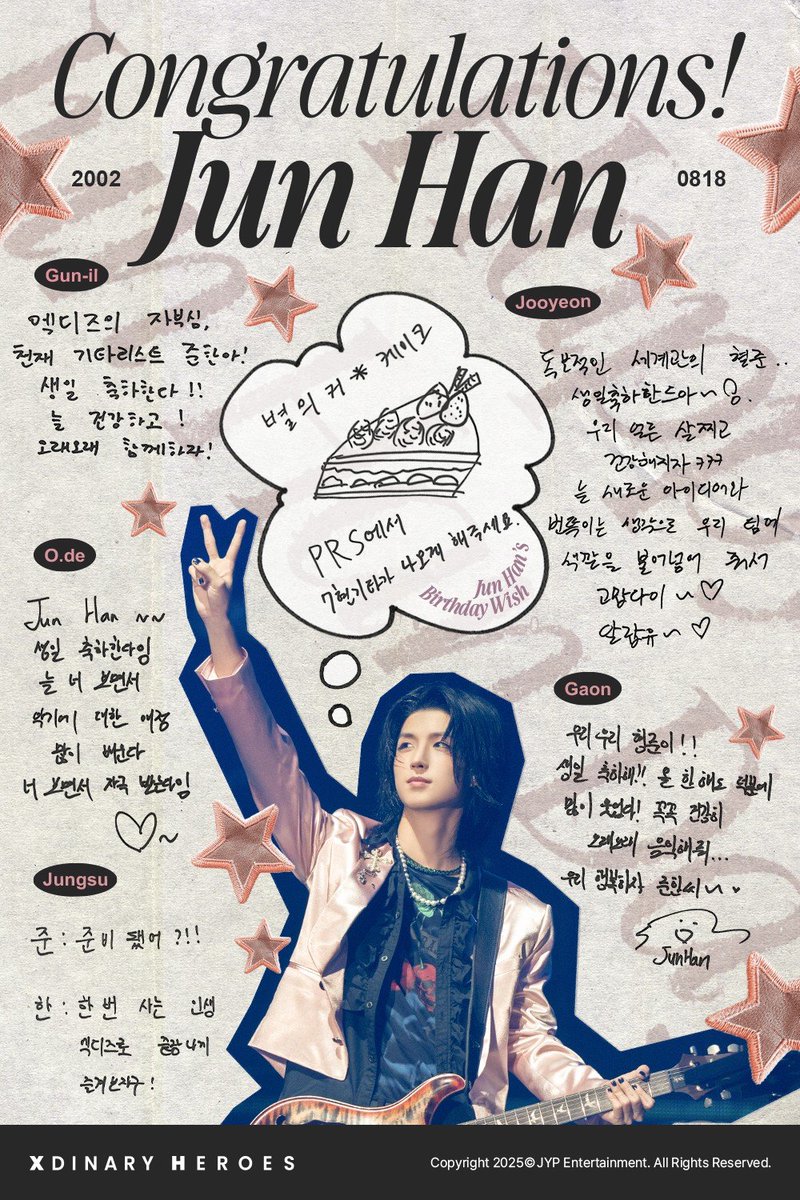 Congratulations!
Jun Han
2002
0818
Gun-il
엑디즈의 자부심,
천재 기타리스트 준한아!
생일 축하한다!!
늘 건강하고!
오래오래 함께하자!
별의 커*케이크
PRS에서
7현기타가 나오게 해주세요.
Jun Han's
Birthday Wish
Jooyeon
독보적인 세계관의 형준..
생일축하한드아~
우리 모든 살찌고
건강해지자 ㅋㅋㅋ
늘 새로운 아이디어와
번쩍이는 생각으로 우리 팀에
색깔을 불어넣어 줘서
고맙다이~♡
알랍유~♡
O.de
Jun Han ~~
생일 축하한다임
늘 너 보면서
악기에 대한 애정
많이 배운다
너 보면서 자극 받는다임
♡~
Gaon
우리우리 형준이!!
생일 축하해!! 올 한해도 덕분에
많이 웃었다! 꼭꼭 건강히
오래오래 음악해줘...
우리 행복하자 준한씨~
JunHan
Jungsu
준 : 준비 됐어?!!
한 : 한번 사는 인생
엑디즈로 존잼나게
즐겨보자구!
XDINARY HEROES
Copyright 2025© JYP Entertainment. All Rights Reserved.